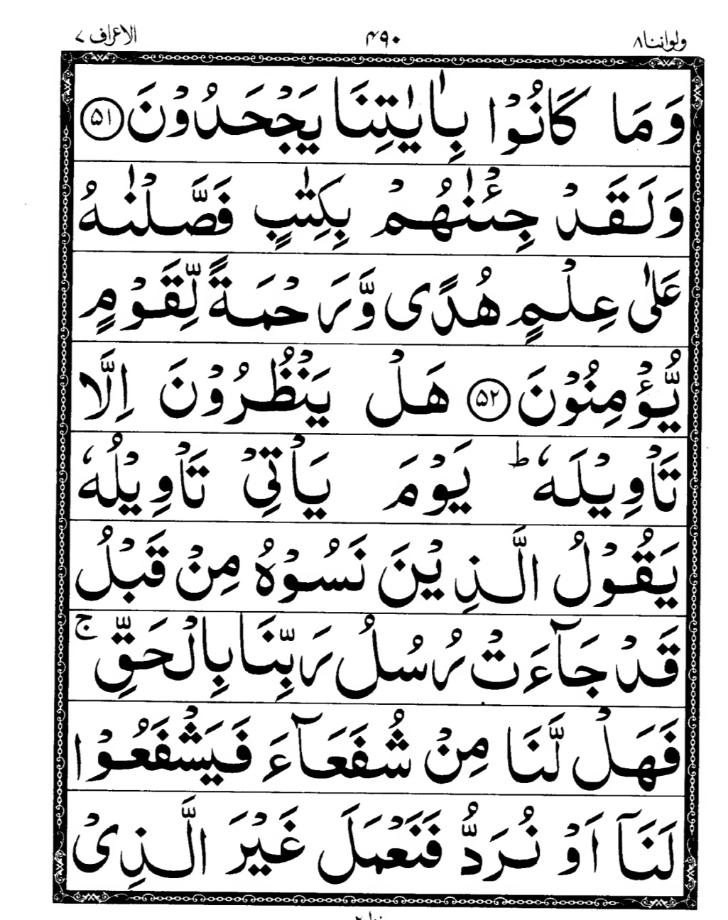 ولواننا۸ ۴۹۰ الاعراف ۷
وَمَا كَانُوْا بِاٰيٰتِنَا يَجْحَدُوْنَ ۵۱
وَلَقَدْ جِئْنٰهُمْ بِكِتٰبٍ فَصَّلْنٰهُ
عَلٰى عِلْمٍ هُدًى وَّرَحْمَةً لِّقَوْمٍ
يُّؤْمِنُوْنَ ۵۲ هَلْ يَنْظُرُوْنَ اِلَّا
تَاْوِيْلَهٗ ؕ يَوْمَ يَاْتِيْ تَاْوِيْلُهٗ
يَقُوْلُ الَّذِيْنَ نَسُوْهُ مِنْ قَبْلُ
قَدْ جَآءَتْ رُسُلُ رَبِّنَا بِالْحَقِّ ۚ
فَهَلْ لَّنَا مِنْ شُفَعَآءَ فَيَشْفَعُوْا
لَنَآ اَوْ نُرَدُّ فَنَعْمَلَ غَيْرَ الَّذِيْ